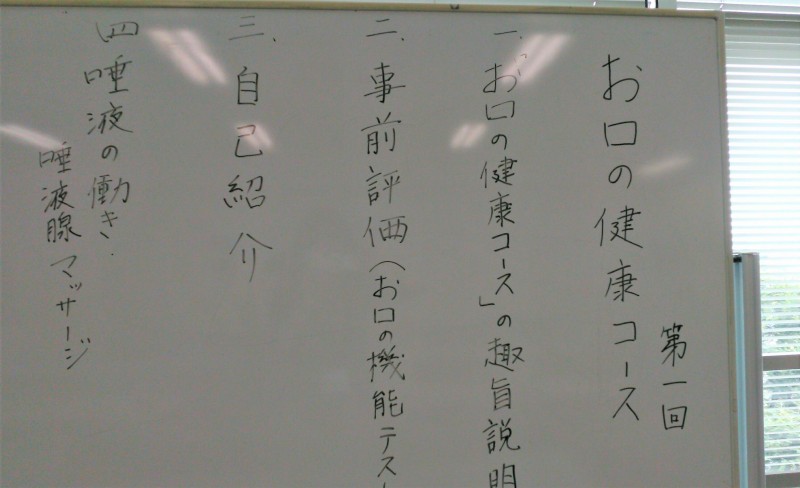 お口の健康コース
第一回
一、「お口の健康コース」の趣旨説明
二、事前評価(お口の機能テスト
三、自己紹介
四、唾液の働き、
唾液腺マッサージ